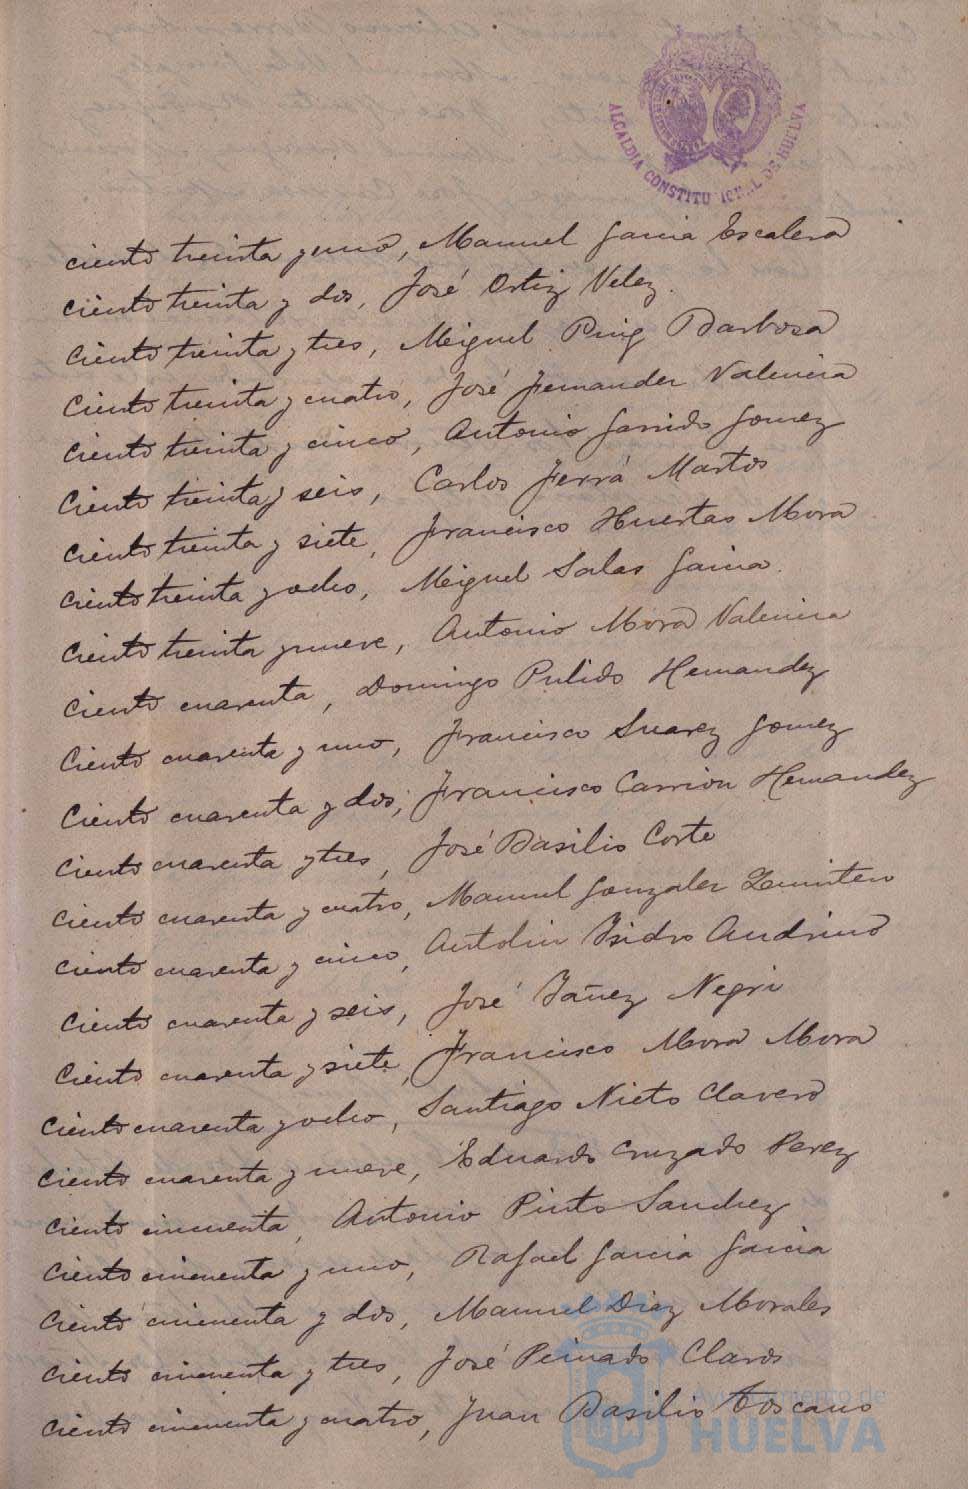 ALCALDIA CONSTITUCIONAL DE HUELVA
Ciento treinta y uno, Manuel Garcia Escalera
Ciento treinta y dos, José Ortiz Velez.
Ciento treinta y tres, Miguel Puig Barbosa
Ciento treinta y cuatro, José Fernandez Valencia
Ciento treinta y cinco, Antonio Garrido Gomez
Ciento treinta y seis, Carlos Ferrá Martos
Ciento treinta y siete, Francisco Huertas Mora
Ciento treinta y ocho, Miguel Salas Garcia.
Ciento treinta y nueve, Antonio Mora Valencia
Ciento cuarenta, Domingo Pulido Hernandez
Ciento cuarenta y uno, Francisco Suarez Gomez
Ciento cuarenta y dos, Francisco Carrion Hernandez
Ciento cuarenta y tres, José Basilio Corte
Ciento cuarenta y cuatro, Manuel Gonzalez
Ciento cuarenta y cinco, Antolin Isidro Andrino
Ciento cuarenta y seis, José Yañez Negri
Ciento cuarenta y siete, Francisco Mora Mora
Ciento cuarenta y ocho, Santiago Nieto Clavero
Ciento cuarenta y nueve, Eduardo Cruzado Perez
Ciento cincuenta, Antonio Pinto Sanchez
Ciento cincuenta y uno, Rafael Garcia Garcia
Ciento cincuenta y dos, Manuel Diaz Morales
Ciento cincuenta y tres, José Peinado Claros
Ciento cincuenta y cuatro, Juan Basilio Toscano
Ayuntamiento de
HUELVA